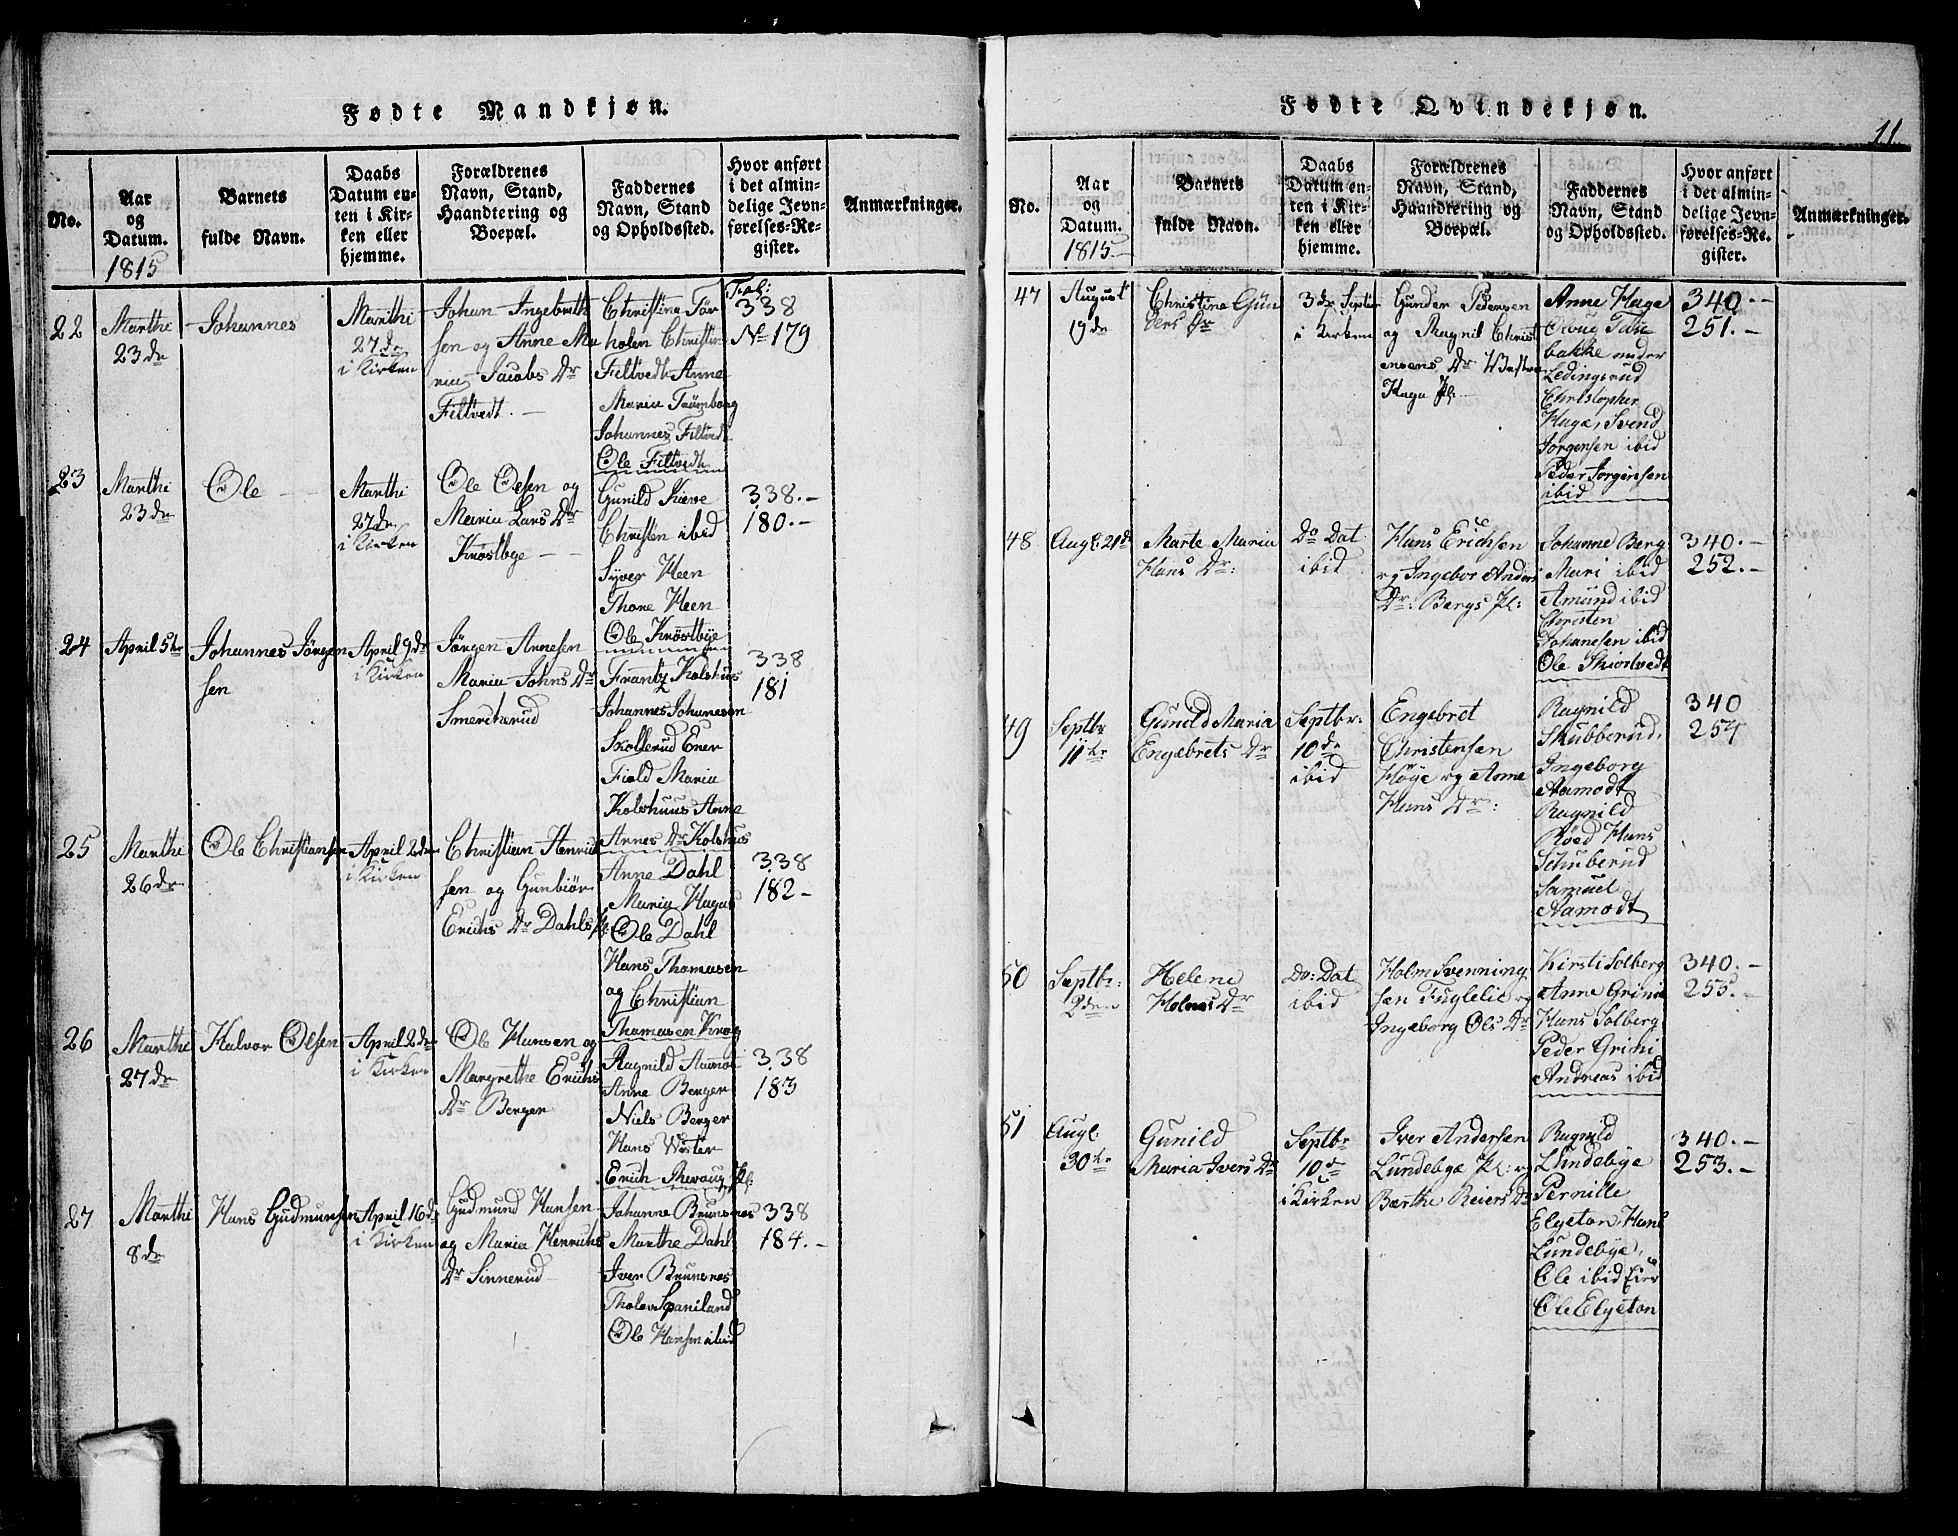 Fødte Mandkjøn.
No.
Aar
og
Datum.
1815
Barnets
fulde Navn.
Daabs
Datum en-
ten i Kir-
ken eller
hjemme.
Forældrenes
Navn, Stand,
Haandtering og
Boepæl.
Faddernes
Navn, Stand
og Opholdssted.
Hvor anført
i det almin-
delige Jevn-
førelses-Re-
gister.
Anmærkninger.
22
Marthi
23de
Johannes
Marthi
27de
i Kirken
Johan Ingebreth
sen og Anne Ma
ria Jacobs Dr
Filtvedt.
Christina Tør
holen Christin
Filtvedt Anne
Maria Trømborg
Johannes Filtvedt
Ole Filtvedt
Fol:
338
No 179
23
Marthi
23de
Ole
Marthi
27de
i Kirken
Ole Olsen og
Maria Lars Dr
Krøstbye
Gunild
Christen ibid
Syver Heen
Thone Heen
Ole Krøstbye
338.-
180.-
24
April 5te
Johannes Jørgen
sen
April 9de
i Kirken
Jørgen Annesen
Maria Johns Dr
Smercherud
Frantz Kolshus
Johannes Johanesen
Skollerud Ener
Fiold Maria
Kolshuus Anne
Annes Dr Kolshus
338
181
25
Marthi
26de
Ole Christiansen
April 2de
i Kirken
Christian Henrich
sen og Gunbiør
Erichs Dr Dahls Pl:
Anne Dahl
Maria Hagas
Ole Dahl
Hans Thomasen
og Christian
Thomasen Krog
338
182-
26
Marthi
27de
Halvor Olsen
April 2de
i Kirken
Ole Hansen og
Margrethe Erichs
Dr Berger
Ragnild Aamot
Anne Berger
Niels Berger
Hans Wister
Erich
338
183
27
Marthi
8de
Hans Gudmunsen
April 16de
i Kirken
Gudmund Hansen
og Maria Henrichs
Dr Sinnerud
Johanne Brunsnes
Marthe Dahl
Iver Brunsnes
Tholev Spaniland
Ole Hansen ibid
338
184.-
Fødte Qvindekjøn.
11.
No.
Aar
og
Datum.
1815
Barnets
fulde Navn.
Daabs
Datum en-
ten i Kir-
ken eller
hjemme.
Forældrenes
Navn, Stand,
Haandtering og
Boepæl.
Faddernes
Navn, Stand
og Opholdssted.
Hvor anført
i det almin-
delige Jevn-
førelses-Re-
gister.
Anmærkninger.
47
August
19de
Christine Gun
ders Dr
3de Septbr
i Kirken
Gunder Pedersen
og Ragnil Christ
ensens Dr Vestre
Haga Pl:
Anne Haga
bakke under
Ledingsrud
Christopher
Haga, Svend
Jørgensen ibid
Peder Jorgensen
ibid
340.-
251.-
48
Augl: 21de
Marte Maria
Hans Dr:
Do Dat
ibid
Hans Erichsen
og Ingebor Anders
Dr: Bergs Pl:
Johanne Berg
Mari ibid
Amund ibid
Christen
Johanesen ibid
Ole Skiortvedt
340.-
252.-
49
Septbr
11te
Gunild Maria
Engebrets Dr
Septbr:
10de
ibid
Engebret
Christensen
Høye og Anne
Hans Dr:
Ragnild
Skubberud,
Ingeborg
Aamodt
Ragnild
Røed Hans
Schuberud
Samuel
Aamodt
340
254
50
Septbr:
2den
Helene
Holmes Dr
Do: Dat
ibid
Holm Svenning
sen Fuglelie og
Ingeborg Ols Dr
Kirsti Solberg
Anne Grimi
Hans Solberg
Peder Grimi
Andreas ibid
340.-
255.-
51
Augl:
30te
Gunild
Maria Ivers Dr
Septbr
10de
i Kirken
Iver Andersen
Lundebye Pl: og
Barthe Reiers Dr
Ragnild
Lundebye
Pernille
Elgeton, Hans
Lundebye,
Ole ibid Eier
Ole Elgeton
340.-
253.-